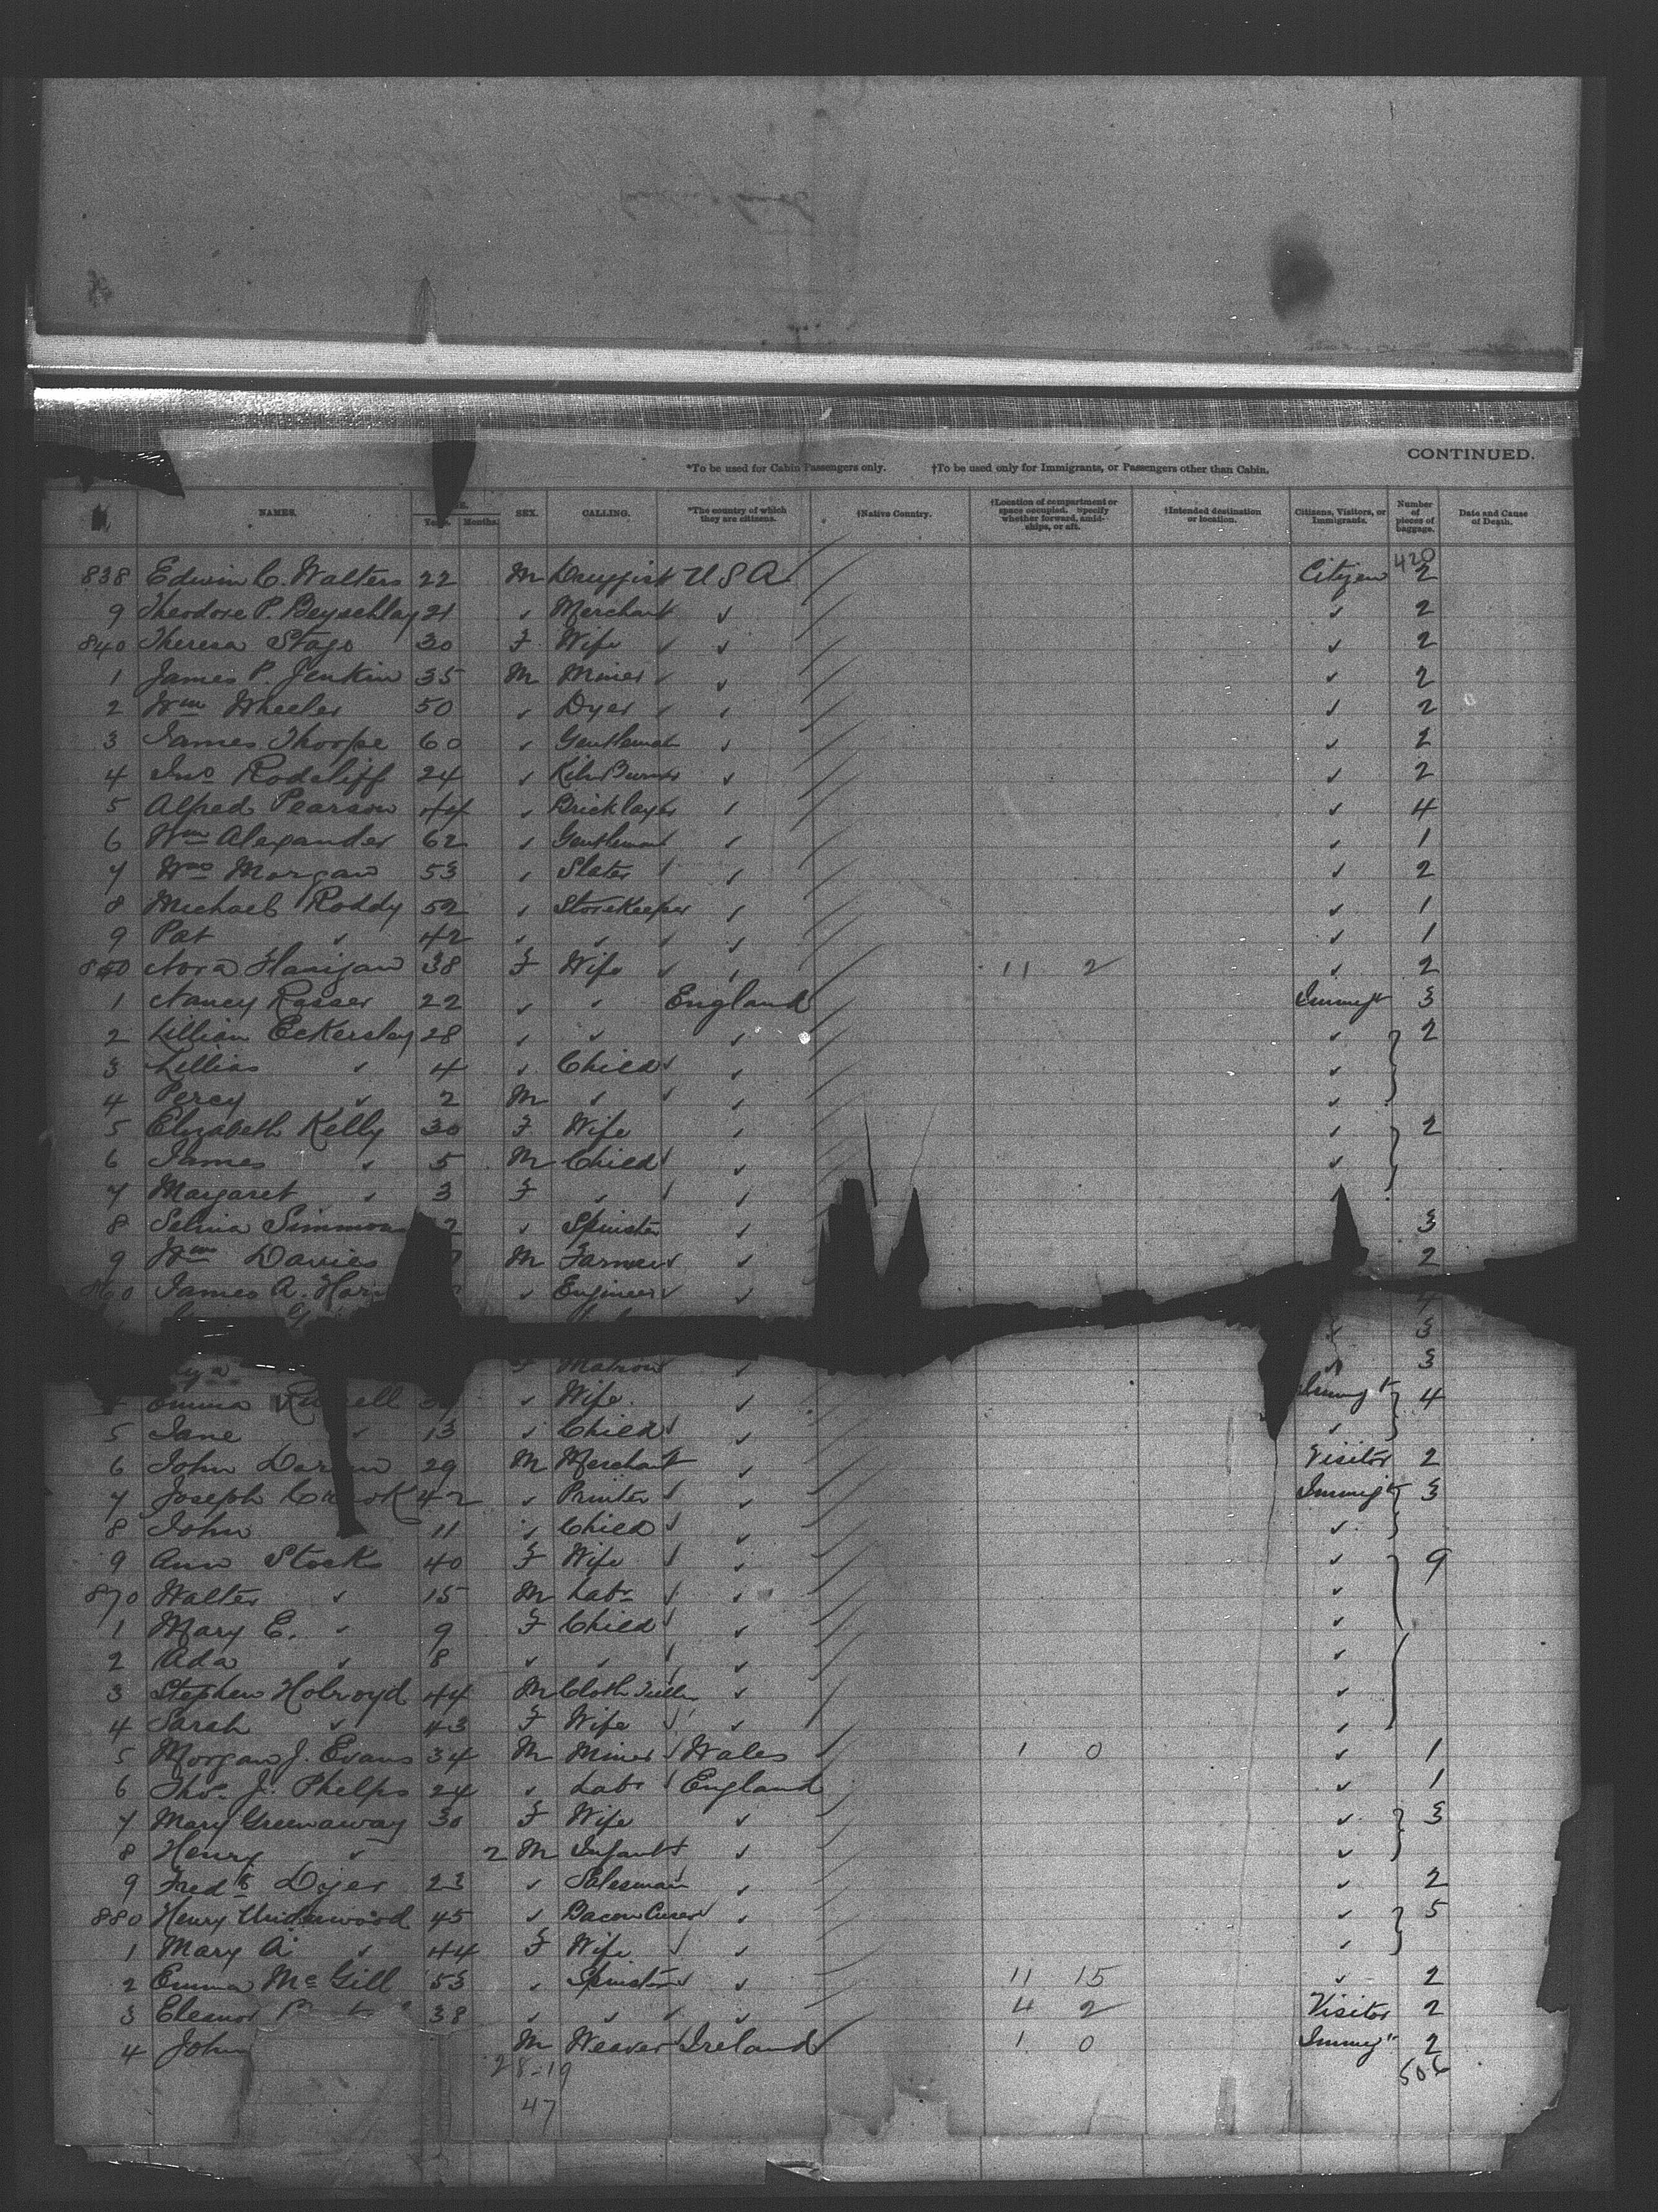 CONTINUED.
*To be used for Cabin Passengers only. †To be used only for Immigrants, or Passengers other than Cabin.
NAMES. Years. Months. SEX. CALLING. *The country of which they are citizens. †Native Country. †Location of compartment or space occupied. Specify whether forward, amidships, or aft. †Intended destination or location. Citizens, Visitors, or Immigrants. Number of pieces of baggage. Date and Cause of Death.
420
838 Edwin C. Walters 22 M Druggist U S A. Citizen 2
9 Theodore P. Beyschlag 21 ✓ Merchant ✓ ✓ 2
840 Theresa Stago 30 F Wife ✓ ✓ ✓ 2
1 James P. Jenkin 35 M Miner ✓ ✓ ✓ 2
2 Wm Wheeler 50 ✓ Dyer ✓ ✓ ✓ 2
3 James Thorpe 60 ✓ Gentleman ✓ ✓ 2
4 Jno Rodcliff 24 ✓ Kiln Burner ✓ ✓ 2
5 Alfred Pearson 44 ✓ Bricklayer ✓ ✓ 4
6 Wm Alexander 62 ✓ Gentleman ✓ ✓ 1
7 Wm Morgan 53 ✓ Slater ✓ ✓ ✓ 2
8 Michael Roddy 52 ✓ Storekeeper ✓ ✓ 1
9 Pat ✓ 42 ✓ ✓ ✓ ✓ ✓ 1
850 Nora Flanigan 38 F Wife ✓ ✓ 11 2 ✓ 2
1 Nancy Rosser 22 ✓ ✓ England Immigt 3
2 Lillian Eckersley 28 ✓ ✓ ✓ ✓ 2
3 Lillias ✓ 4 ✓ Child ✓ ✓ ✓
4 Percy ✓ 2 M ✓ ✓ ✓ ✓
5 Elizabeth Kelly 30 F Wife ✓ ✓ 2
6 James ✓ 5 M Child ✓ ✓ ✓
7 Margaret ✓ 3 F ✓ ✓ ✓ ✓
8 Selina 2 ✓ Spinster ✓ 3
9 Wm Davies M Farmer ✓ ✓ 2
860 James A. ✓ Engineer ✓ ✓ 4
✓ 3
F Matron ✓ ✓ 3
Emma ✓ Wife ✓ Immigt 4
5 Jane ✓ 13 ✓ Child ✓ ✓ ✓
6 John 29 M Merchant ✓ Visitor 2
7 Joseph 42 ✓ Printer ✓ ✓ Immigt 3
8 John 11 ✓ Child ✓ ✓ ✓
9 Ann Stocks 40 F Wife ✓ ✓ ✓ 9
870 Walter ✓ 15 M Labr ✓ ✓ ✓
1 Mary E. ✓ 9 F Child ✓ ✓ ✓
2 Ada ✓ 8 ✓ ✓ ✓ ✓ ✓
3 Stephen Holroyd 44 M Cloth ✓ ✓
4 Sarah ✓ 43 F Wife ✓ ✓ ✓
5 Morgan J. Evans 34 M Miner ✓ Wales 1 0 ✓ 1
6 Thos. J. Phelps 24 ✓ Labr ✓ England ✓ 1
7 Mary Greenaway 30 F Wife ✓ ✓ 3
8 Henry ✓ 2 M Infant ✓ ✓ ✓
9 Fredk Dyer 23 ✓ Salesman ✓ ✓ 2
880 Henry Underwood 45 ✓ Bacon Curer ✓ ✓ ✓ 5
1 Mary A. ✓ 44 F Wife ✓ ✓ ✓
2 Emma McGill 53 ✓ Spinster ✓ ✓ 11 15 ✓ 2
3 Eleanor 38 ✓ ✓ ✓ ✓ 4 2 Visitor 2
4 John M Weaver ✓ Ireland 1 0 Immigt 2
28-19 506
47